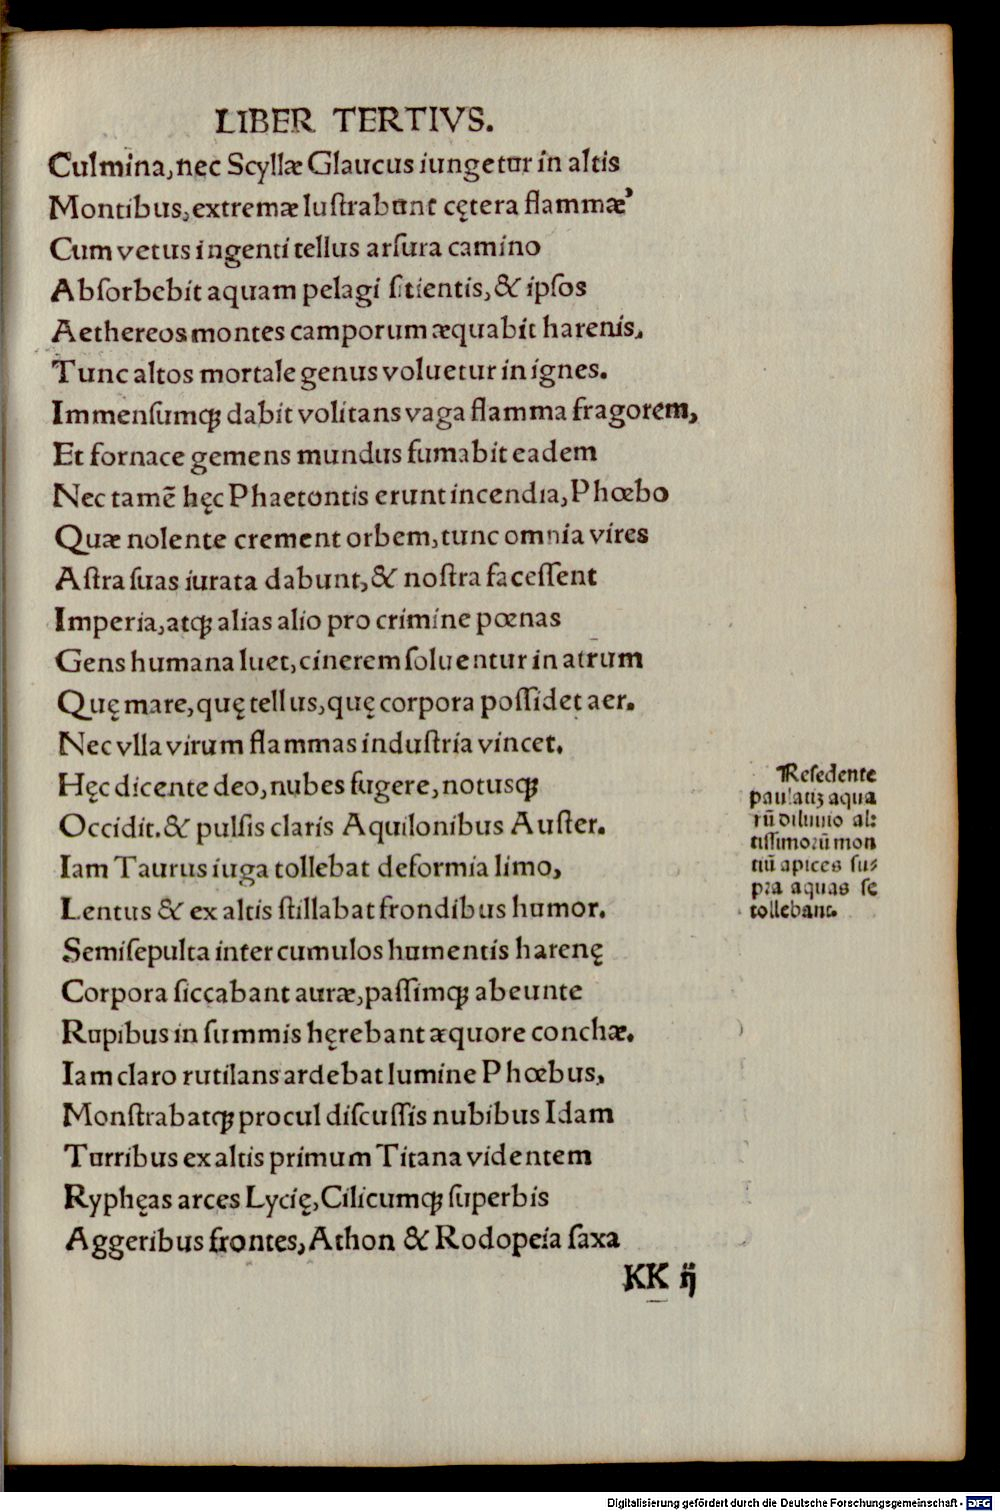 LIBER TERTIVS.
Culmina, nec Scyllæ Glaucus iungetur in altis
Montibus, extremæ lustrabunt cętera flammæ
Cum vetus ingenti tellus arsura camino
Absorbebit aquam pelagi sitientis, & ipsos
Aethereos montes camporum æquabit harenis.
Tunc altos mortale genus voluetur in ignes.
Immensumqꝫ dabit volitans vaga flamma fragorem,
Et fornace gemens mundus fumabit eadem
Nec tamē hęc Phaetontis erunt incendia, Phœbo
Quæ nolente crement orbem, tunc omnia vires
Astra suas iurata dabunt, & nostra facessent
Imperia, atqꝫ alias alio pro crimine pœnas
Gens humana luet, cinerem soluentur in atrum
Quę mare, quę tellus, quę corpora possidet aer.
Nec vlla virum flammas industria vincet.
Hęc dicente deo, nubes fugere, notusqꝫ
Occidit. & pulsis claris Aquilonibus Auster.
Iam Taurus iuga tollebat deformia limo,
Lentus & ex altis stillabat frondibus humor.
Semisepulta inter cumulos humentis harenę
Corpora siccabant auræ, passimqꝫ abeunte
Rupibus in summis hęrebant æquore conchæ.
Iam claro rutilans ardebat lumine Phœbus,
Monstrabatqꝫ procul discussis nubibus Idam
Turribus ex altis primum Titana videntem
Ryphęas arces Lycię, Cilicumqꝫ superbis
Aggeribus frontes, Athon & Rodopeia saxa
KK ij
Resedente
paulatiꝫ aqua
rū diluuio al:
tissimorū mon
tiū apices su:
pra aquas se
tollebant.
Digitalisierung gefördert durch die Deutsche Forschungsgemeinschaft - DFG